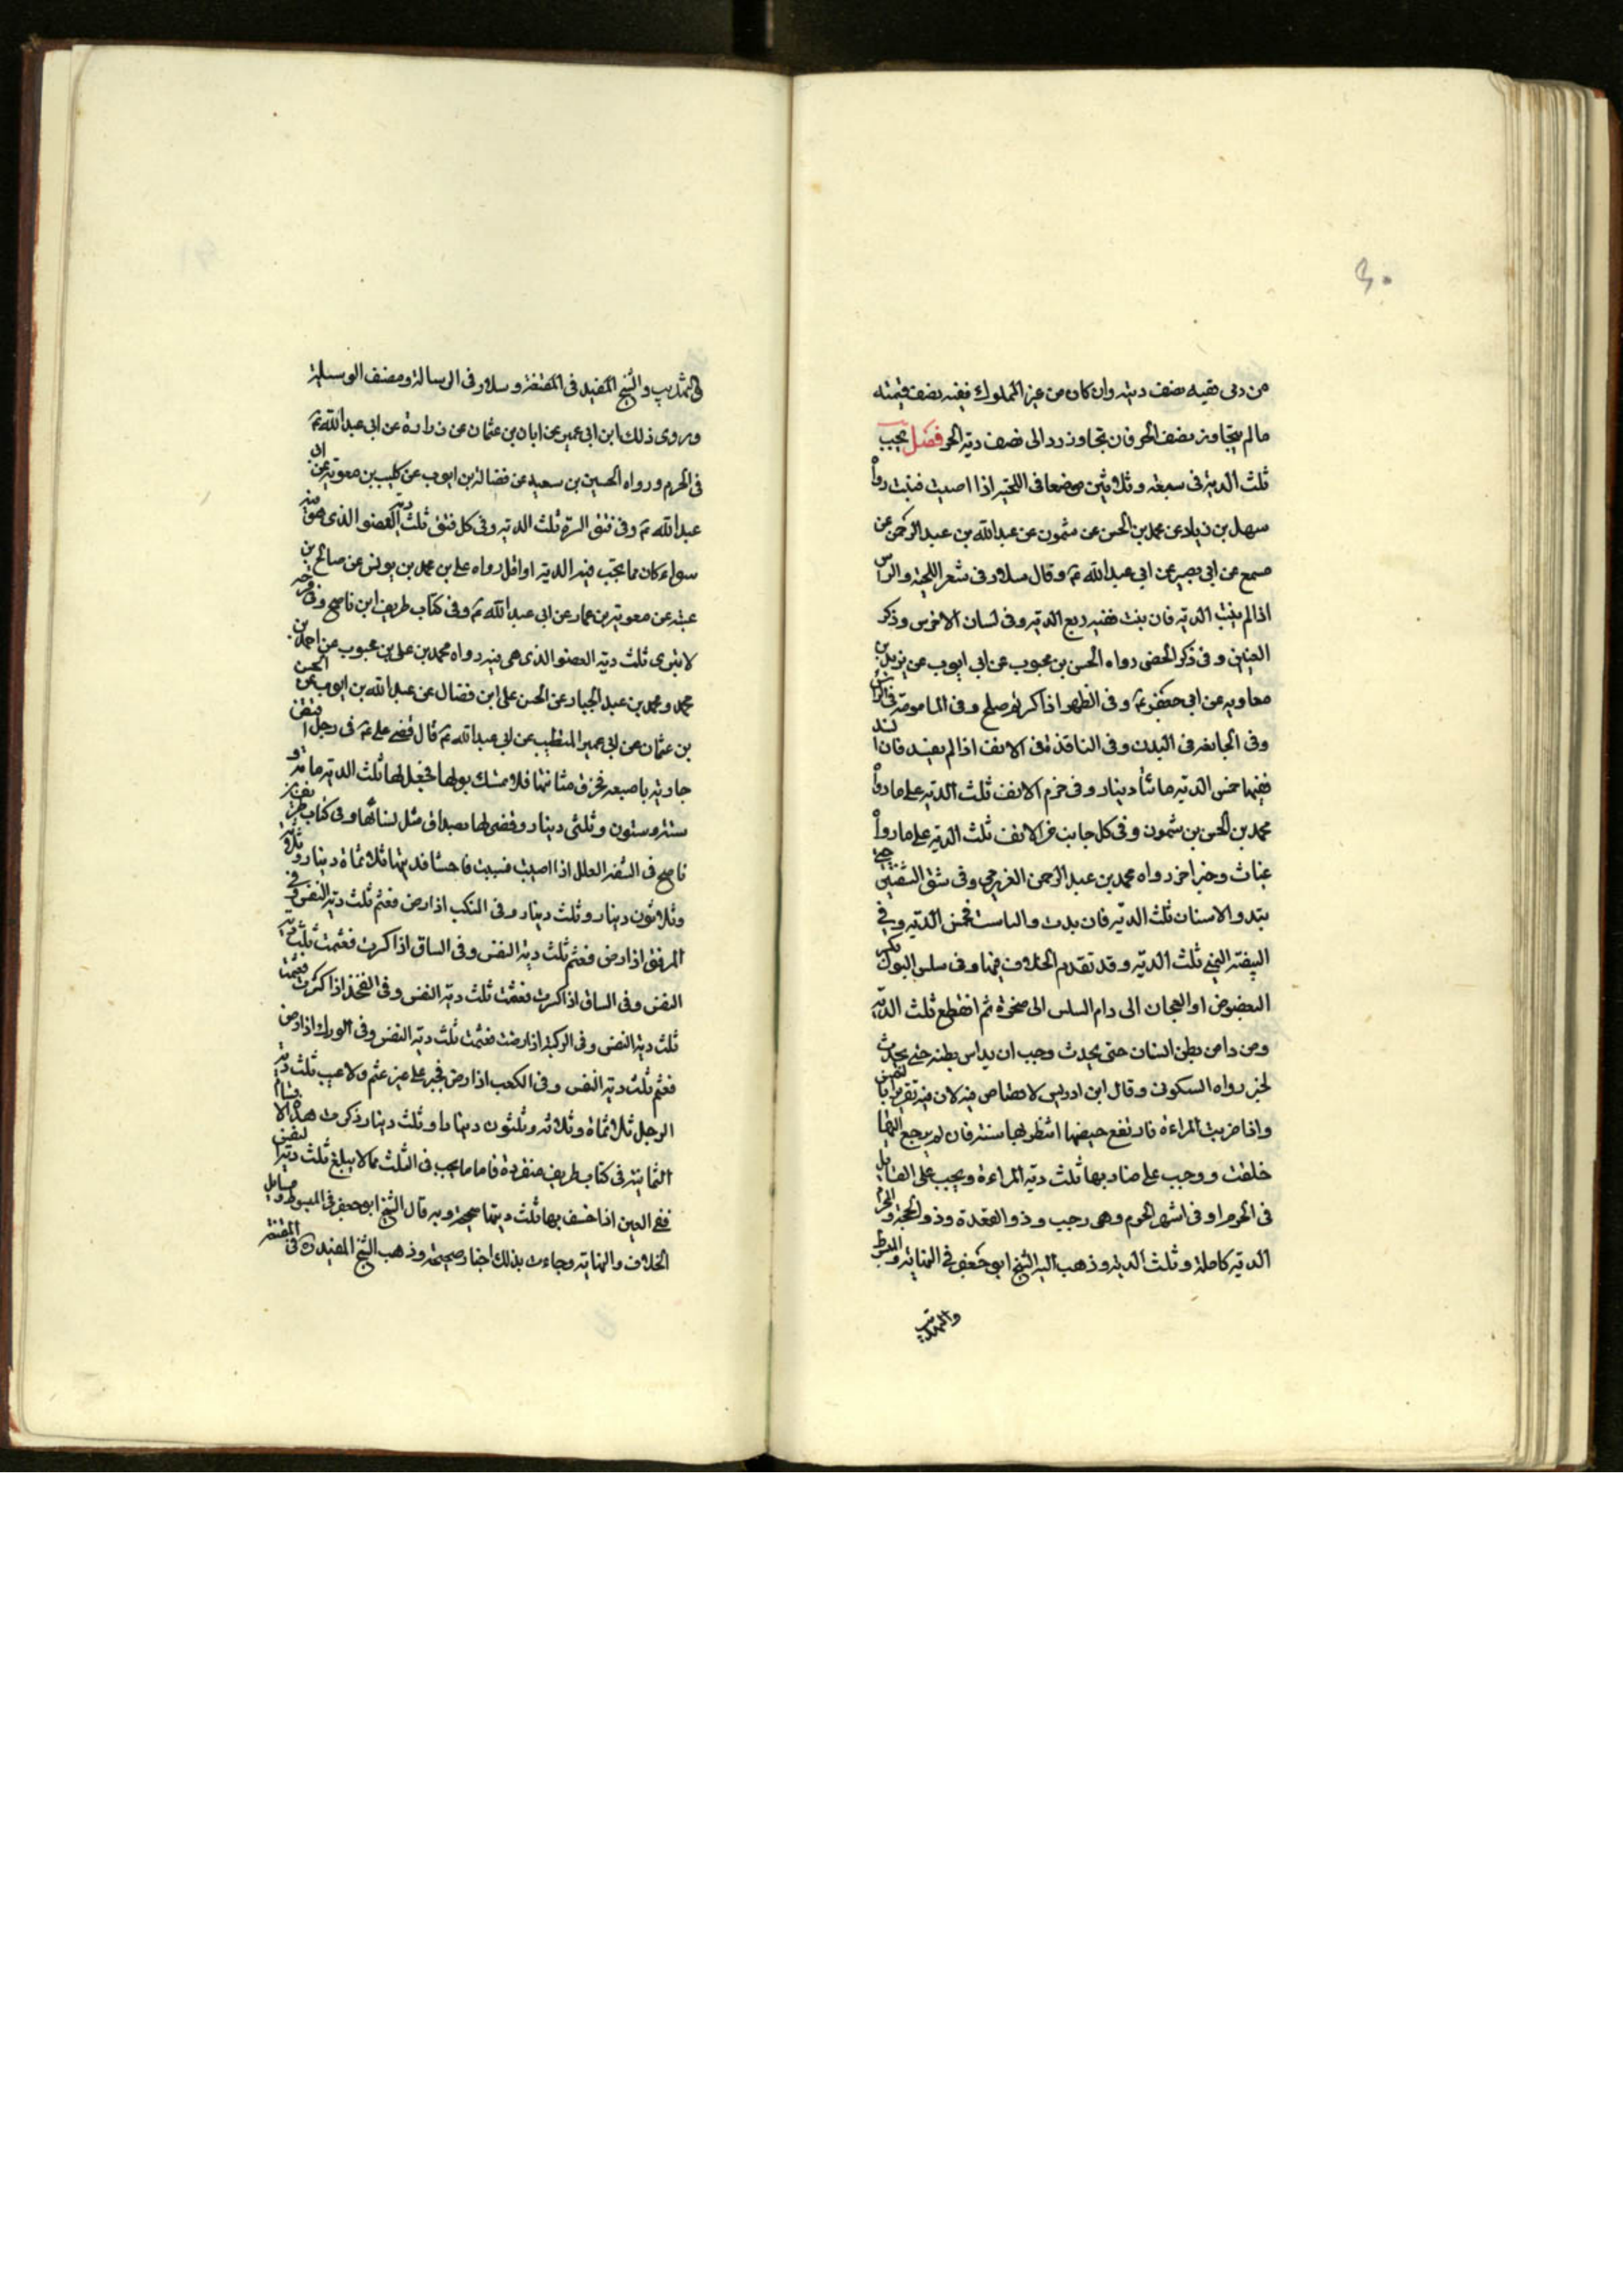 من دمى نصفه نصف ديته وان كان من عين المملوك ففيه نصف قيمته
ما لم يتجاوز نصف الحر فان تجاوز رد الى نصف دية الحر فصل يجب
ثلث الدية فى سبعة وثلاثين موضعا فى اللحية اذا اصيبت فنبت رواه
سهل بن زياد عن محمد بن الحسن عن شمون عن عبدالله بن عبد الرحمن عن
مسمع عن ابى بصير عن ابى عبدالله ع وقال سلار فى شعر اللحية والراس
اذا لم ينبت الدية فان نبت ففيه ربع الدية وفى لسان الاخرس وذكر
العنين وفى ذكر الخصى رواه الحسن بن محبوب عن ابى ايوب عن بريد بن
معاويه عن ابى جعفر ع وفى الظهر اذا كسر ثم صلح وفى المامومة فى الراس
وفى الجايفه فى البدن وفى النافذة فى الانف اذا لم يفسد فان انسد
ففيها خمس الدية مائتا دينار وفى خرم الانف ثلث الدية على ما رواه
محمد بن الحسن بن شمون وفى كل جانب من الانف ثلث الدية على ما رواه
غياث وخبر اخر رواه محمد بن عبد الرحمن العزرمى وفى شق الشفتين حتى
يبدو الاسنان ثلث الدية فان بدت والتامت فخمس الدية وفى
البيضة اليمنى ثلث الدية وقد تقدم الخلاف فيها وفى سلس البول بكسر
البعضوص او العجان الى دام السلس الى صخوة ثم انقطع ثلث الدية
ومن داس بطن انسان حتى يحدث وجب ان يداس بطنه حتى يحدث
لخبر رواه السكونى وقال ابن ادريس لا قصاص فيه لان فيه تغريرا بالنفس
واذا ضربت المراءة فارتفع حيضها انتظر بها سنة فان لم يرجع اليها
خلفت ووجب على ضاربها ثلث دية المراءة ويجب على القاتل
فى الحرم او فى اشهر الحرم وهى رجب وذو القعدة وذو الحجة والمحرم
الدية كاملة وثلث الدية وذهب اليه الشيخ ابو جعفر فى النهاية والمبسوط
والتهذيب
فى التهذيب والشيخ المفيد فى المقنعة وسلار فى الرسالة ومصنف الوسيلة
وروى ذلك ابن ابى عمير عن ابان بن عثمان عن زرارة عن ابى عبدالله ع
فى الحرم ورواه الحسين بن سعيد عن فضالة بن ايوب عن كليب بن معوية عن ابى
عبدالله ع وفى فتق السرة ثلث الدية وفى كل فتق ثلث دية العضو الذى هو فيه
سواء كان مما يجب فيه الدية او اقل رواه على بن محمد بن يونس عن صالح بن
عقبة عن معوية بن عمار عن ابى عبدالله ع وفى كتاب طريف ابن ناصح وفى قرحه
لا تبرى ثلث دية العضو الذى هى فيه رواه محمد بن على بن محبوب عن احمد بن
محمد ومحمد بن عبد الجبار عن الحسن على ابن فضال عن عبدالله بن ايوب عن الحسن
بن عثمان عن ابى عمير المتطبب عن ابى عبدالله ع قال قضى على ع فى رجل افتض
جارية باصبعه فخرق مثانتها فلا تمسك بولها فجعل لها ثلث الدية مائة و
ستة وستون وثلثى دينار وقضى لها بصداق مثل نسائها وفى كتاب طريف بن
ناصح فى الشفة العليا اذا اصيبت فشينت فاحشا فديتها ثلاثمائة دينار وثلاثة
وثلاثون دينار وثلث دينار وفى المنكب اذا رض فعثم ثلث دية النفس وفى
المرفق اذا رض فعثم ثلث دية النفس وفى الساق اذا كسرت فعثمت ثلث دية
النفس وفى الساق اذا كسرت فعثمت ثلث دية النفس وفى الفخذ اذا كسرت فعثمت
ثلث دية النفس وفى الركبة اذا رضت فعثمت ثلث دية النفس وفى الورك اذا رض
فعثم ثلث دية النفس وفى الكعب اذا رض فجبر على غير عثم ولا عيب ثلث دية
الرجل ثلاثمائة وثلاثة وثلثون دينارا وثلث دينار ذكرت هذه الاقسام
الثمانية فى كتاب طريف منفردة فاما ما يجب فى الثلث مما لا يبلغ ثلث دية النفس
ففى العين اذا خسف بها ثلث ديتها صحيحة وبه قال الشيخ ابو جعفر فى المبسوط ومسايل
الخلاف والنهاية وجاءت بذلك اخبار صحيحة وذهب الشيخ المفيد ره فى المقنعة